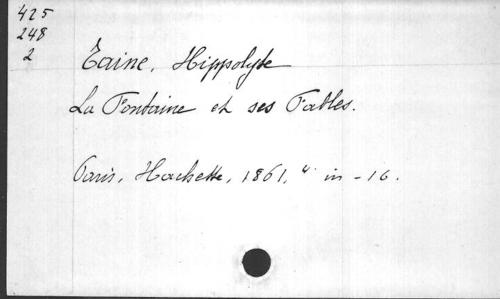 425
248
2
Taine, Hippolyte
La Fontaine et ses Fables.
Paris, Hachette, 1861, in-16.